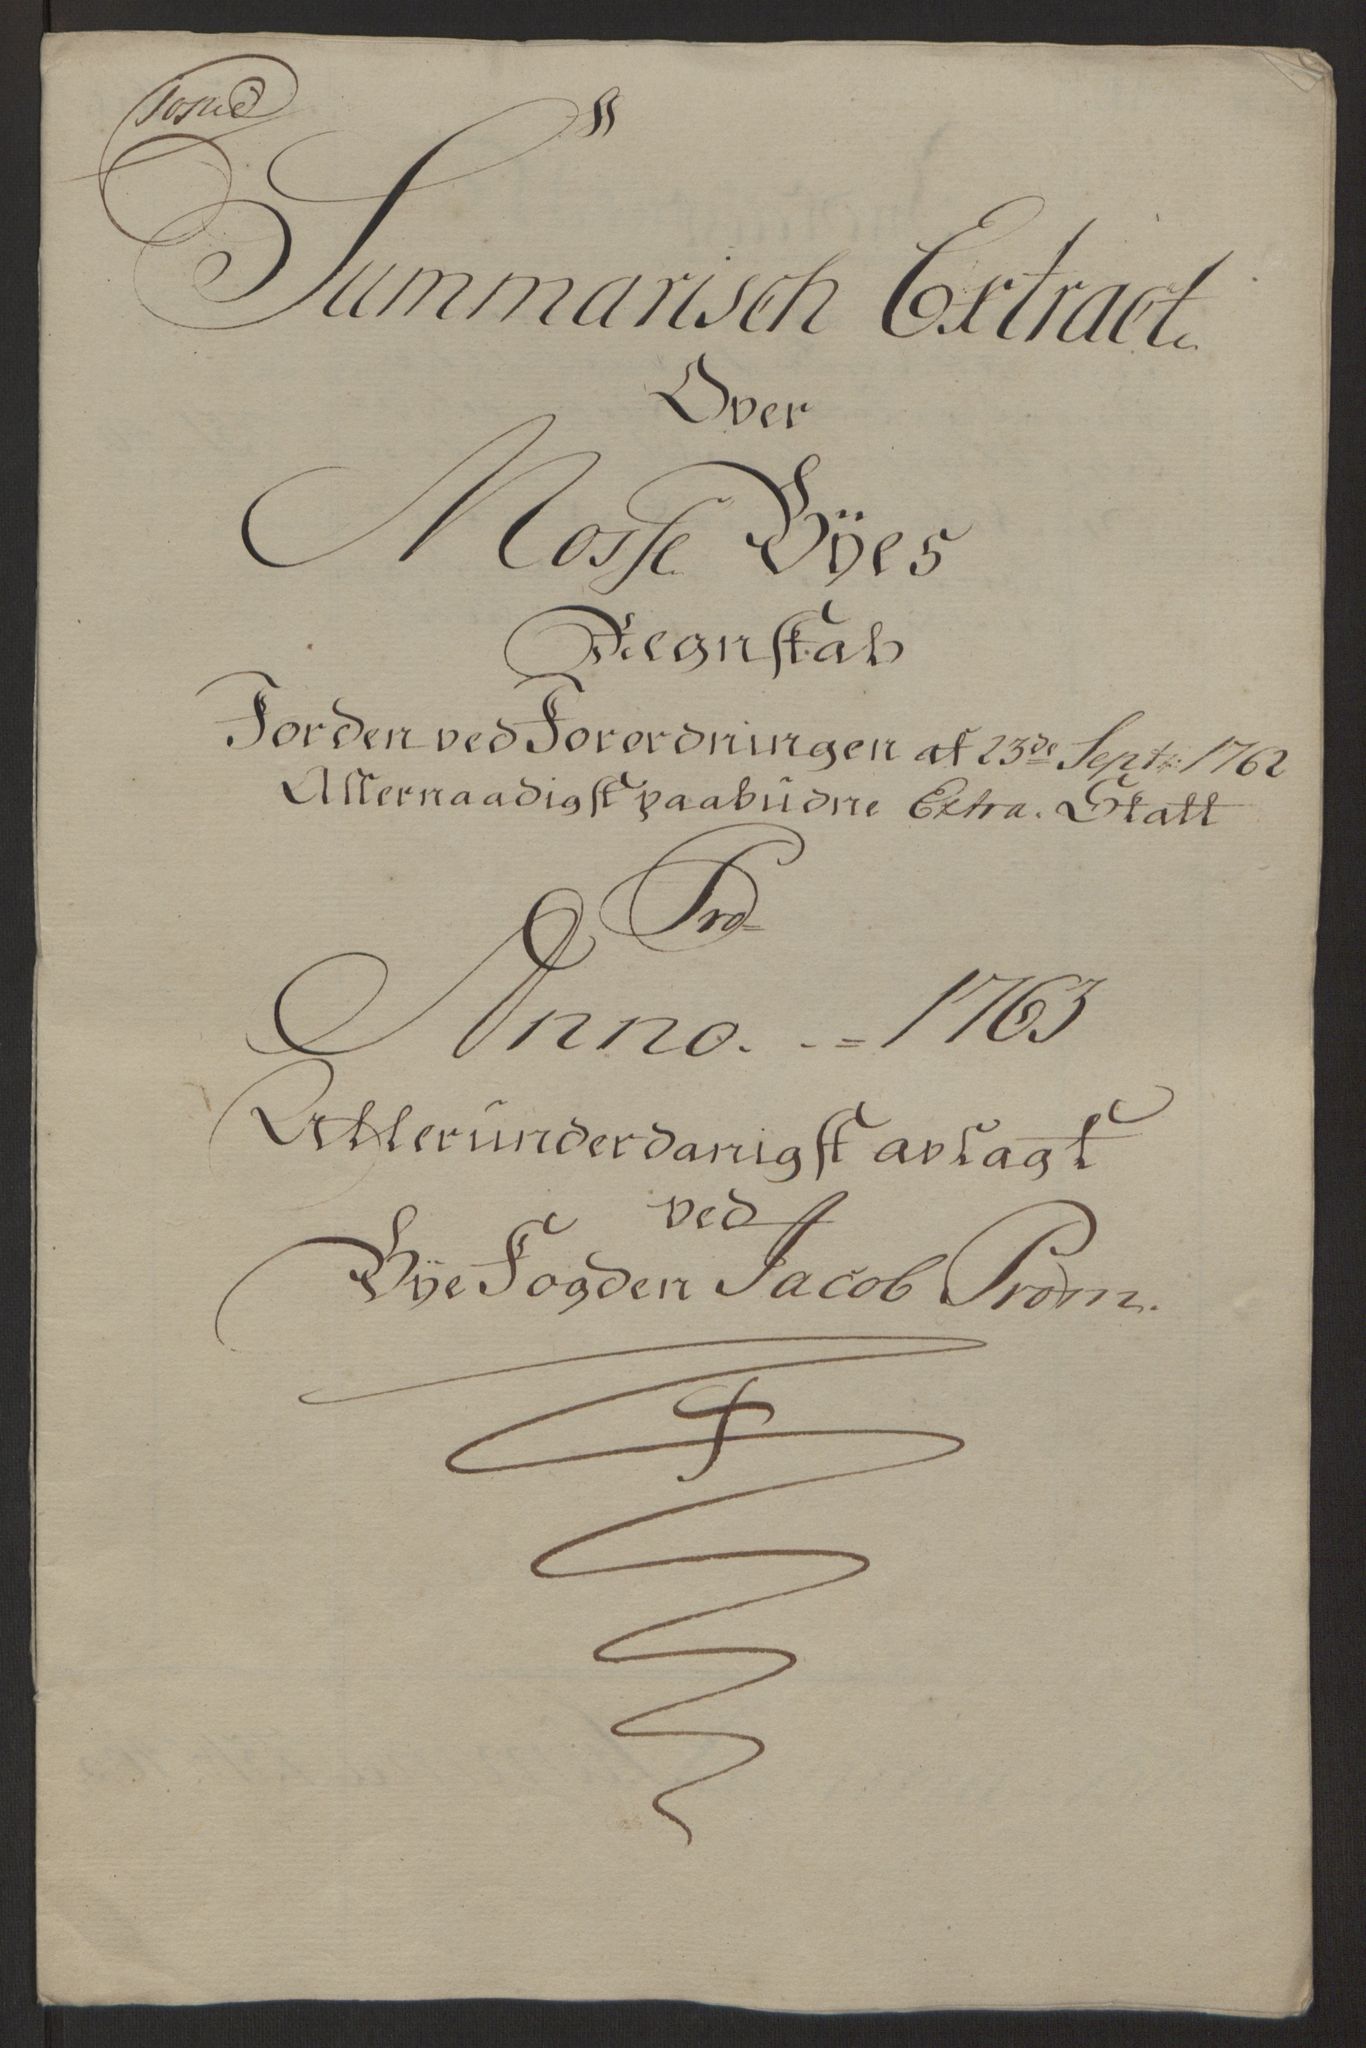 Summarisch Extract.
Over
Mosse Bÿes
Regnskab
For den ved Forordningen af 23de Septr: 1762
Allernaadigst paabudne Extra. Skatt
Pro
Anno. .-= 1763
Allerunderdanigst aflagt
ved
Bÿe Fogden Jacob Prøm.